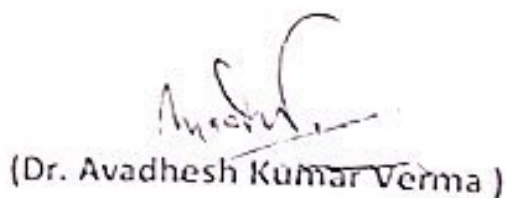 (Dr. Avadhesh Kumar Verma )